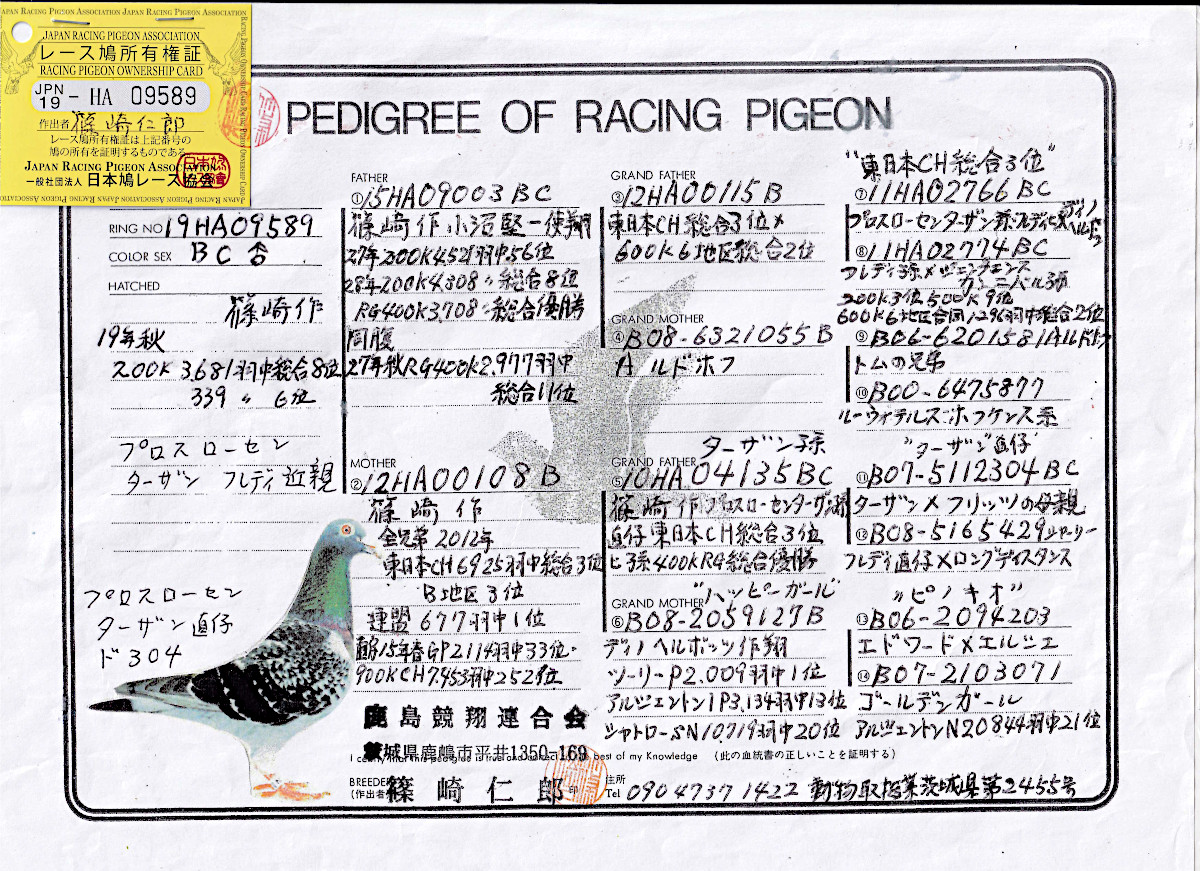 JAPAN RACING PIGEON ASSOCIATION
レース鳩所有権証
RACING PIGEON OWNERSHIP CARD
JPN 19 - HA 09589
作出者 篠崎仁郎
レース鳩所有権証は上記番号の
鳩の所有を証明するものである。
JAPAN RACING PIGEON ASSOCIATION
一般社団法人 日本鳩レース協会
PEDIGREE OF RACING PIGEON
RING NO 19HA09589
COLOR SEX BC ♂
HATCHED
篠崎作
19年秋
200K 3,681羽中総合8位
339 〃 6位
プロスローセン
ターザン フレディ近親
プロスローセン
ターザン直仔
ド304
FATHER
①15HA09003BC
篠崎作 小沼堅一使翔
27年200K4,521羽中56位
28年200K4,308〃総合8位
RG400K3,708〃総合優勝
同腹
27年秋RG400K2,977羽中
総合11位
MOTHER
②12HA00108B
篠崎作
全兄弟2012年
東日本CH6925羽中総合3位
B地区3位
連盟677羽中1位
15年春GP2114羽中33位
900KCH7,453羽中252位
GRAND FATHER
③12HA00115B
東日本CH総合3位×
600K6地区総合2位
GRAND MOTHER
④B08-6321055B
Aルドホフ
ターザン子系
GRAND FATHER
⑤10HA04135BC
篠崎作プロスローセンターザン
直仔東日本CH総合3位
ヒ孫400KRG総合優勝
GRAND MOTHER "ハッピーガール
⑥B08-2059127B
ディノヘルボッツ作翔
ツーリーP2.009羽中1位
アルジェントン1P3,134羽中13位
シャトローSN10719羽中20位
"東日本CH総合3位"
⑦11HA02766BC
プロスローセンターザン系×フレディ
⑧11HA02774BC
フレディ孫×
200K3位500K9位
600K6地区合同1,296羽中総合2位
⑨B06-6201581Aルドホフ
トムの兄弟
⑩B00-6475877
ルーウィテルズ・ホフケンス系
"ターザン直仔
⑪B07-5112304BC
ターザン×フリッツの母親
⑫B08-5165429シャーリー
フレディ直仔×ロングディスタンス
"ピノキオ"
⑬B06-2094203
エドワード×エルジェ
⑭B07-2103071
ゴールデンガール
アルジェントンN20844羽中21位
鹿島競翔連合会
茨城県鹿嶋市平井1350-169
I certify that this pedigree is true and correct to the best of my Knowledge (此の血統書の正しいことを証明する)
BREEDER (作出者) 篠崎仁郎 印
住所 Tel 090 4737 1422 動物取扱業茨城県第2455号